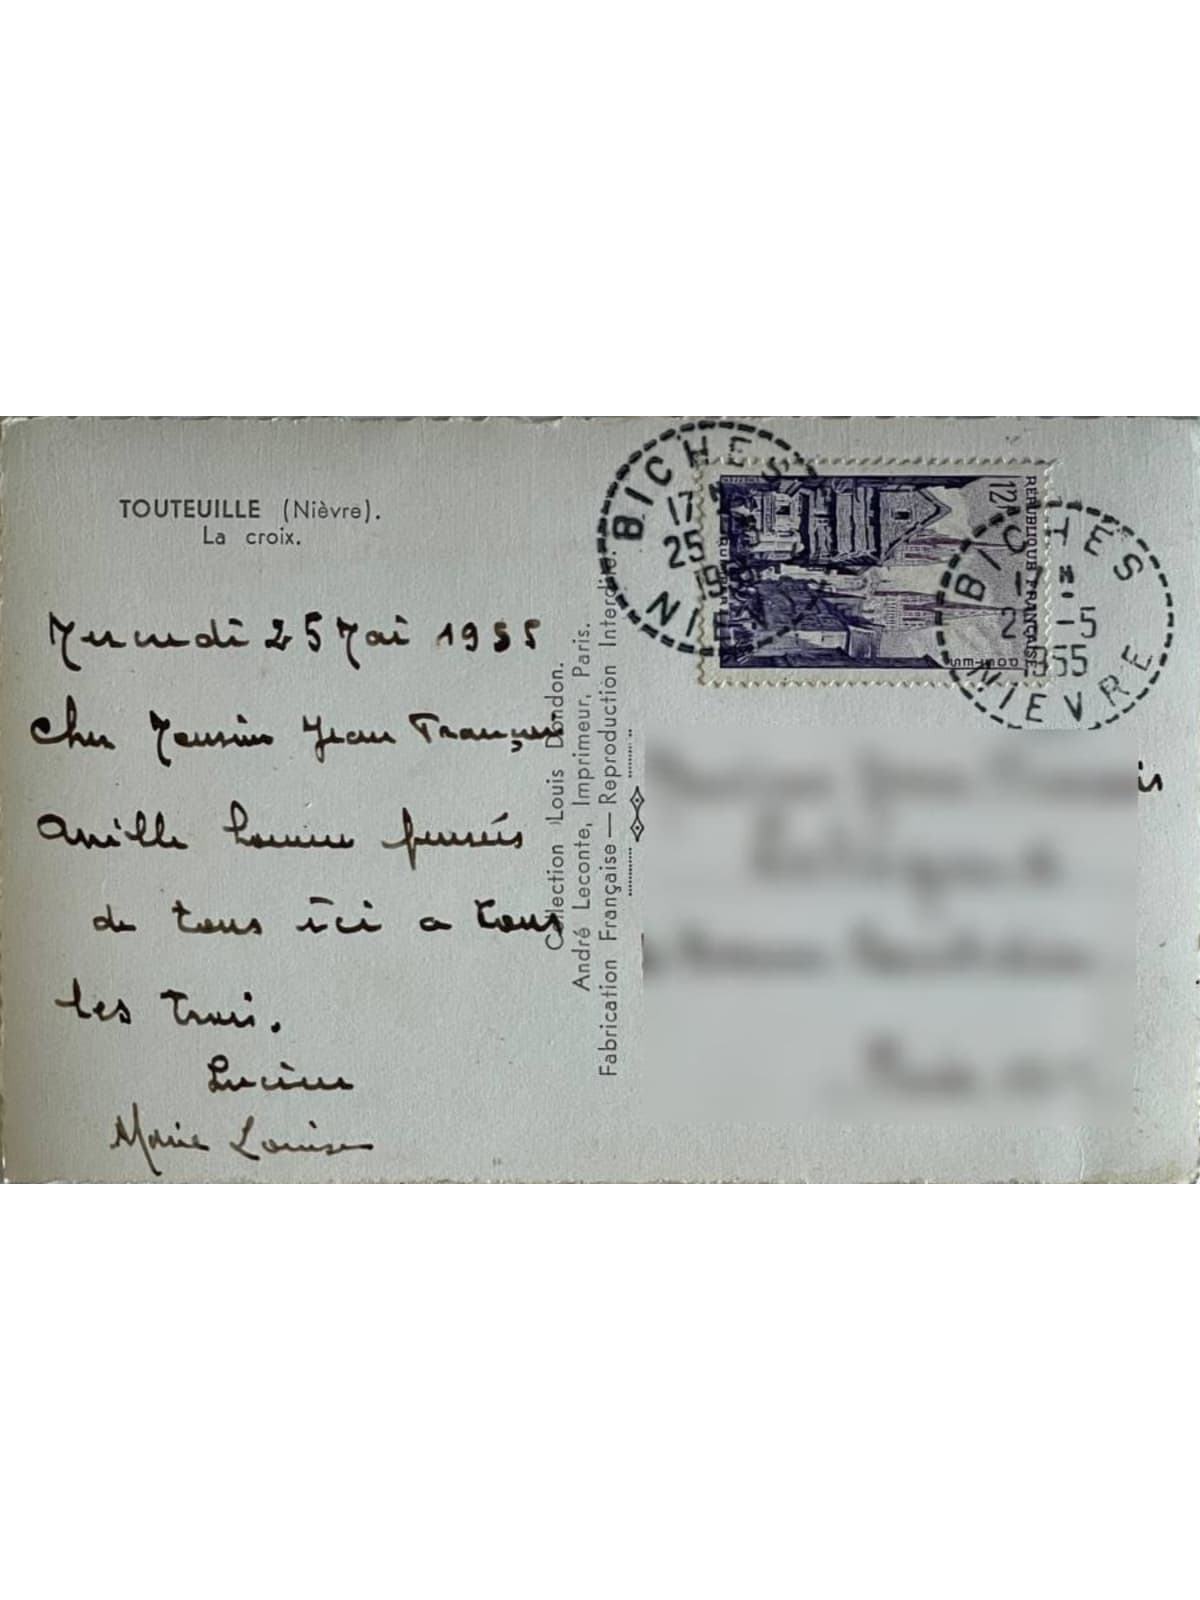 TOUTEUILLE (Nièvre).
La croix.
Mercredi 25 Mai 1955
Cher Monsieur Jean François
Amille bonne pensés
de tous ici a tous
les trois.
Lucien
Marie Louise
Collection Louis Dondon.
André Leconte, Imprimeur, Paris.
Fabrication Française — Reproduction Interdite.
BICHES
17
25
19
NIEVRE
12F
REPUBLIQUE FRANÇAISE
BICHES
-5
1955
NIEVRE
is